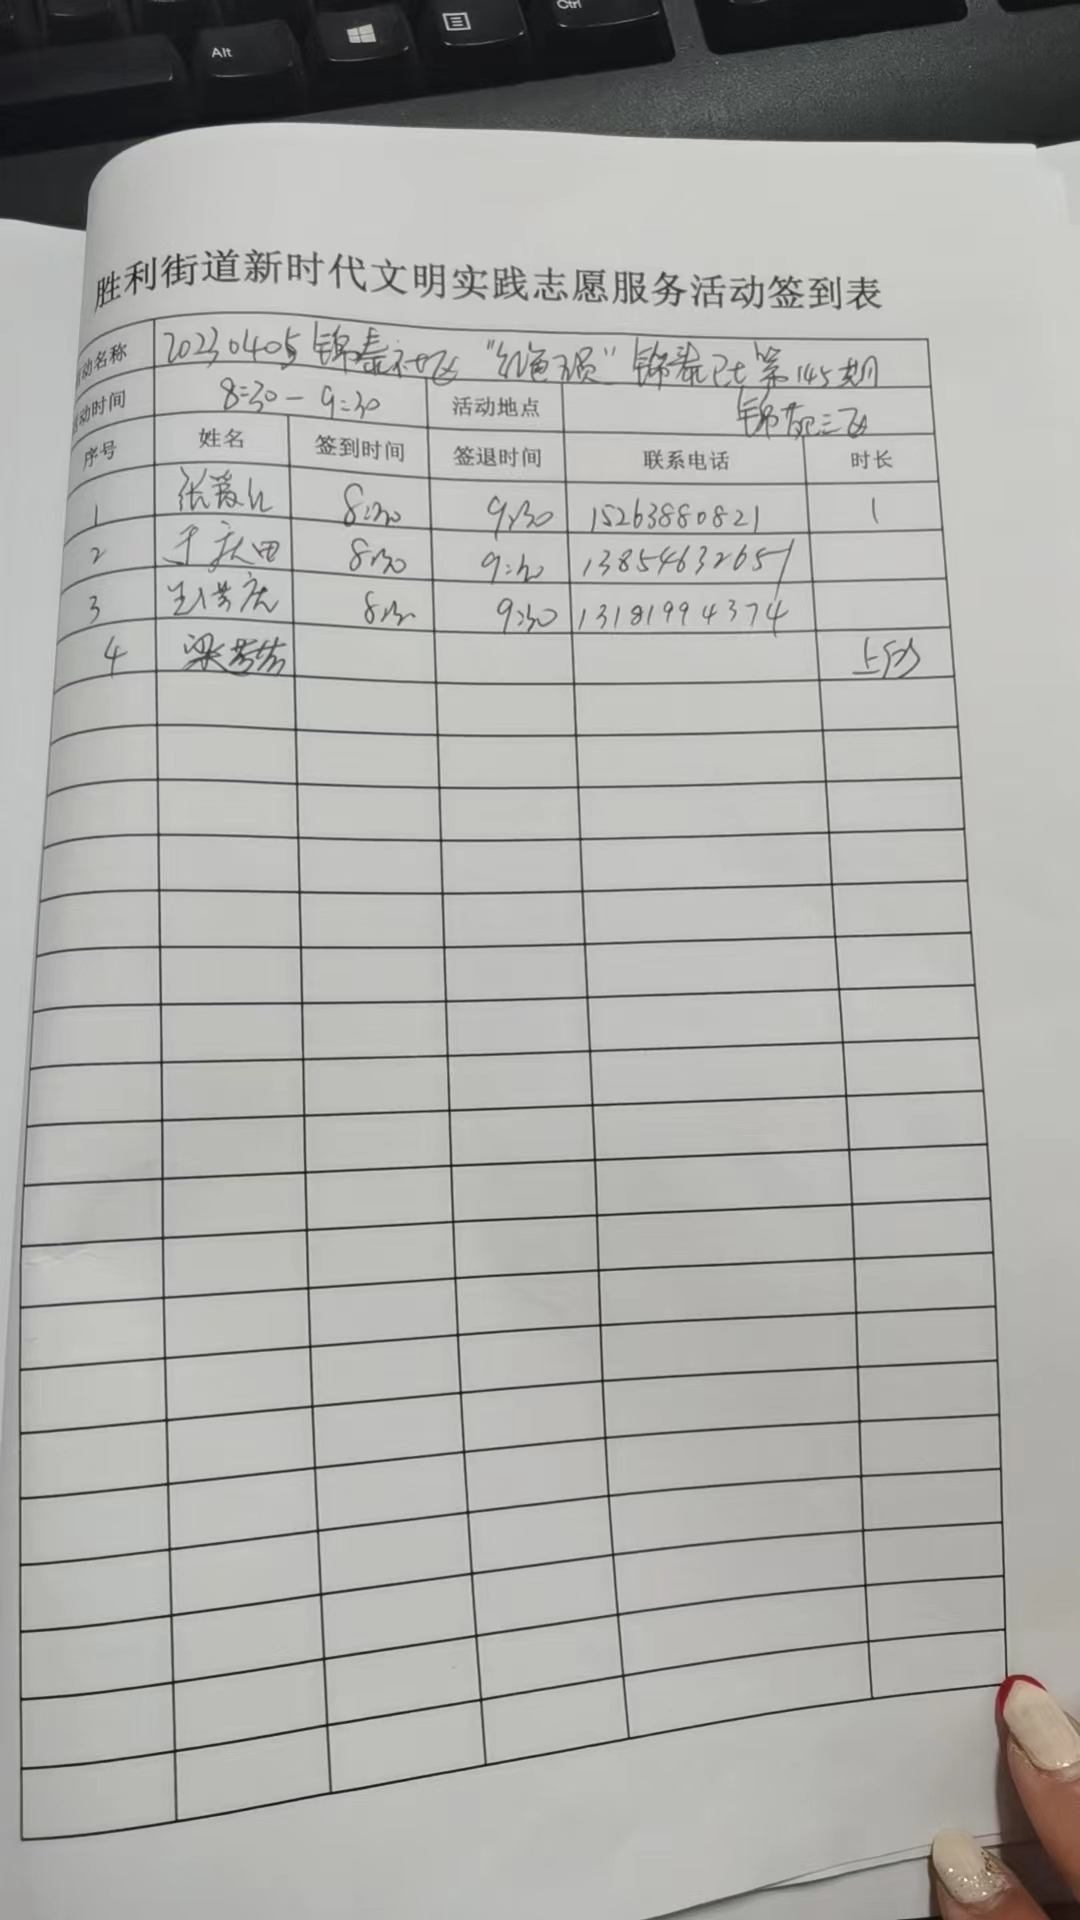 Alt
Ctrl
胜利街道新时代文明实践志愿服务活动签到表
动名称 20230405锦泰社区“红色 ”锦泰 第145期
动时间 8:30-9:30 活动地点 锦苑三区
序号 姓名 签到时间 签退时间 联系电话 时长
1 张爱 8:30 9:30 15263880821 1
2 于庆田 8:30 9:30 13854632651
3 8:30 9:30 13181994374
4 梁芳芳